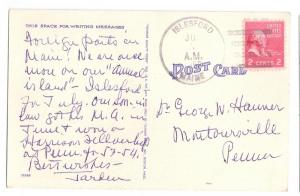 THIS SPACE FOR WRITING MESSAGES
Foreign parts in
Maine! We are once
more on our "annual
island" - Islesford
for July. Our son-in-
law got his M.A. in
June & won a
Harrison Fellowship
at Penn. for 53-54.
Best wishes -
ISLESFORD
A.M.
MAINE
POST CARD
2 CENTS 2
Dr George W. Hanner
Montoursville
Penna